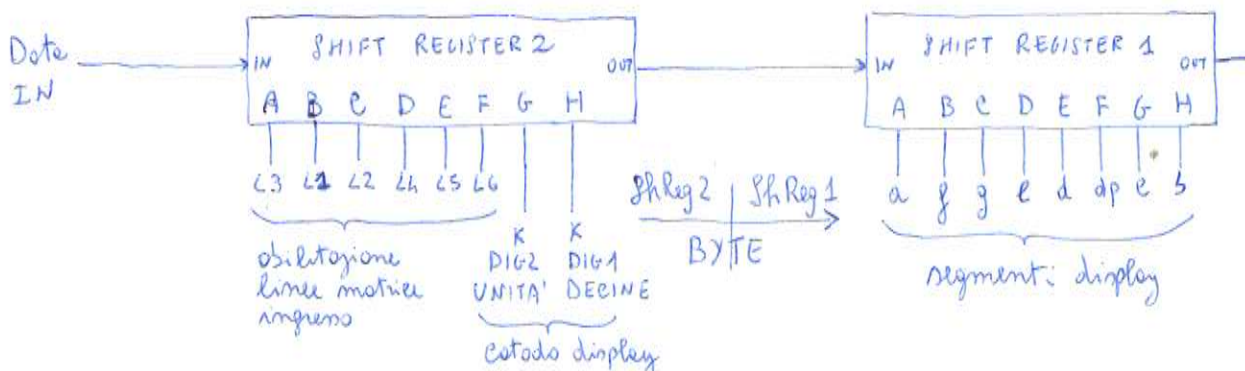 Date
IN
SHIFT REGISTER 2
IN
OUT
A B C D E F G H
L3 L1 L2 L4 L5 L6
abilitazione
linee matrice
ingresso
K K
DIG2 DIG1
UNITA' DECINE
catodo display
ShReg2 ShReg1
BYTE
SHIFT REGISTER 1
IN
OUT
A B C D E F G H
a f g e d dp c b
segmenti display